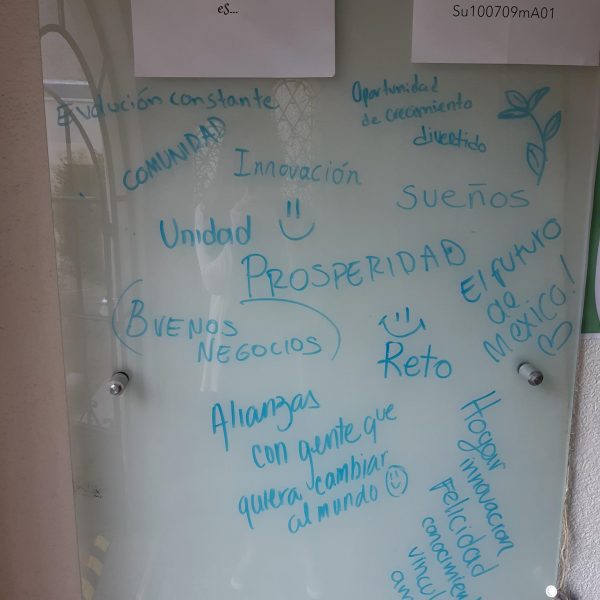 es...
Su100709mA01
Evolución constante
Oportunidad
de crecimiento
divertido
COMUNIDAD
Innovación
SUEÑOS
Unidad
PROSPERIDAD
El futuro
de
México!
BUENOS
NEGOCIOS
Reto
Alianzas
con gente que
quiera cambiar
al mundo
Hogar
innovacion
Felicidad
conocimien
vincul
am